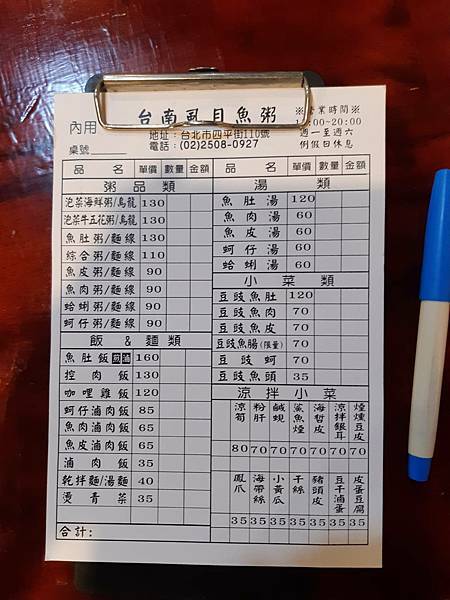 台南虱目魚粥
內用
桌號
地址：台北市四平街110號
電話：(02)2508-0927
※營業時間※
:00~20:00
週一至週六
例假日休息
品名 單價 數量 金額
粥品類
泡菜海鮮粥/烏龍 130
泡菜牛五花粥/烏龍 130
魚肚粥/麵線 130
綜合粥/麵線 110
魚皮粥/麵線 90
魚肉粥/麵線 90
蛤蜊粥/麵線 90
蚵仔粥/麵線 90
飯&麵類
魚肚飯 煎 滷 160
控肉飯 130
咖哩雞飯 120
蚵仔滷肉飯 85
魚肉滷肉飯 65
魚皮滷肉飯 65
滷肉飯 35
乾拌麵/湯麵 40
燙青菜 35
合計：
品名 單價 數量 金額
湯類
魚肚湯 120
魚肉湯 60
魚皮湯 60
蚵仔湯 60
蛤蜊湯 60
小菜類
豆豉魚肚 120
豆豉魚肉 70
豆豉魚皮 70
豆豉魚腸(限量) 70
豆豉蚵 70
豆豉魚頭 35
涼拌小菜
涼筍 粉肝 鹹蜆 鯊魚煙 海哲皮 涼拌銀耳 煙燻豆皮
80 70 70 70 70 70 70
鳳爪 海帶絲 小黃瓜 干絲 豬頭皮 豆干滷蛋 皮蛋豆腐
35 35 35 35 35 35 35